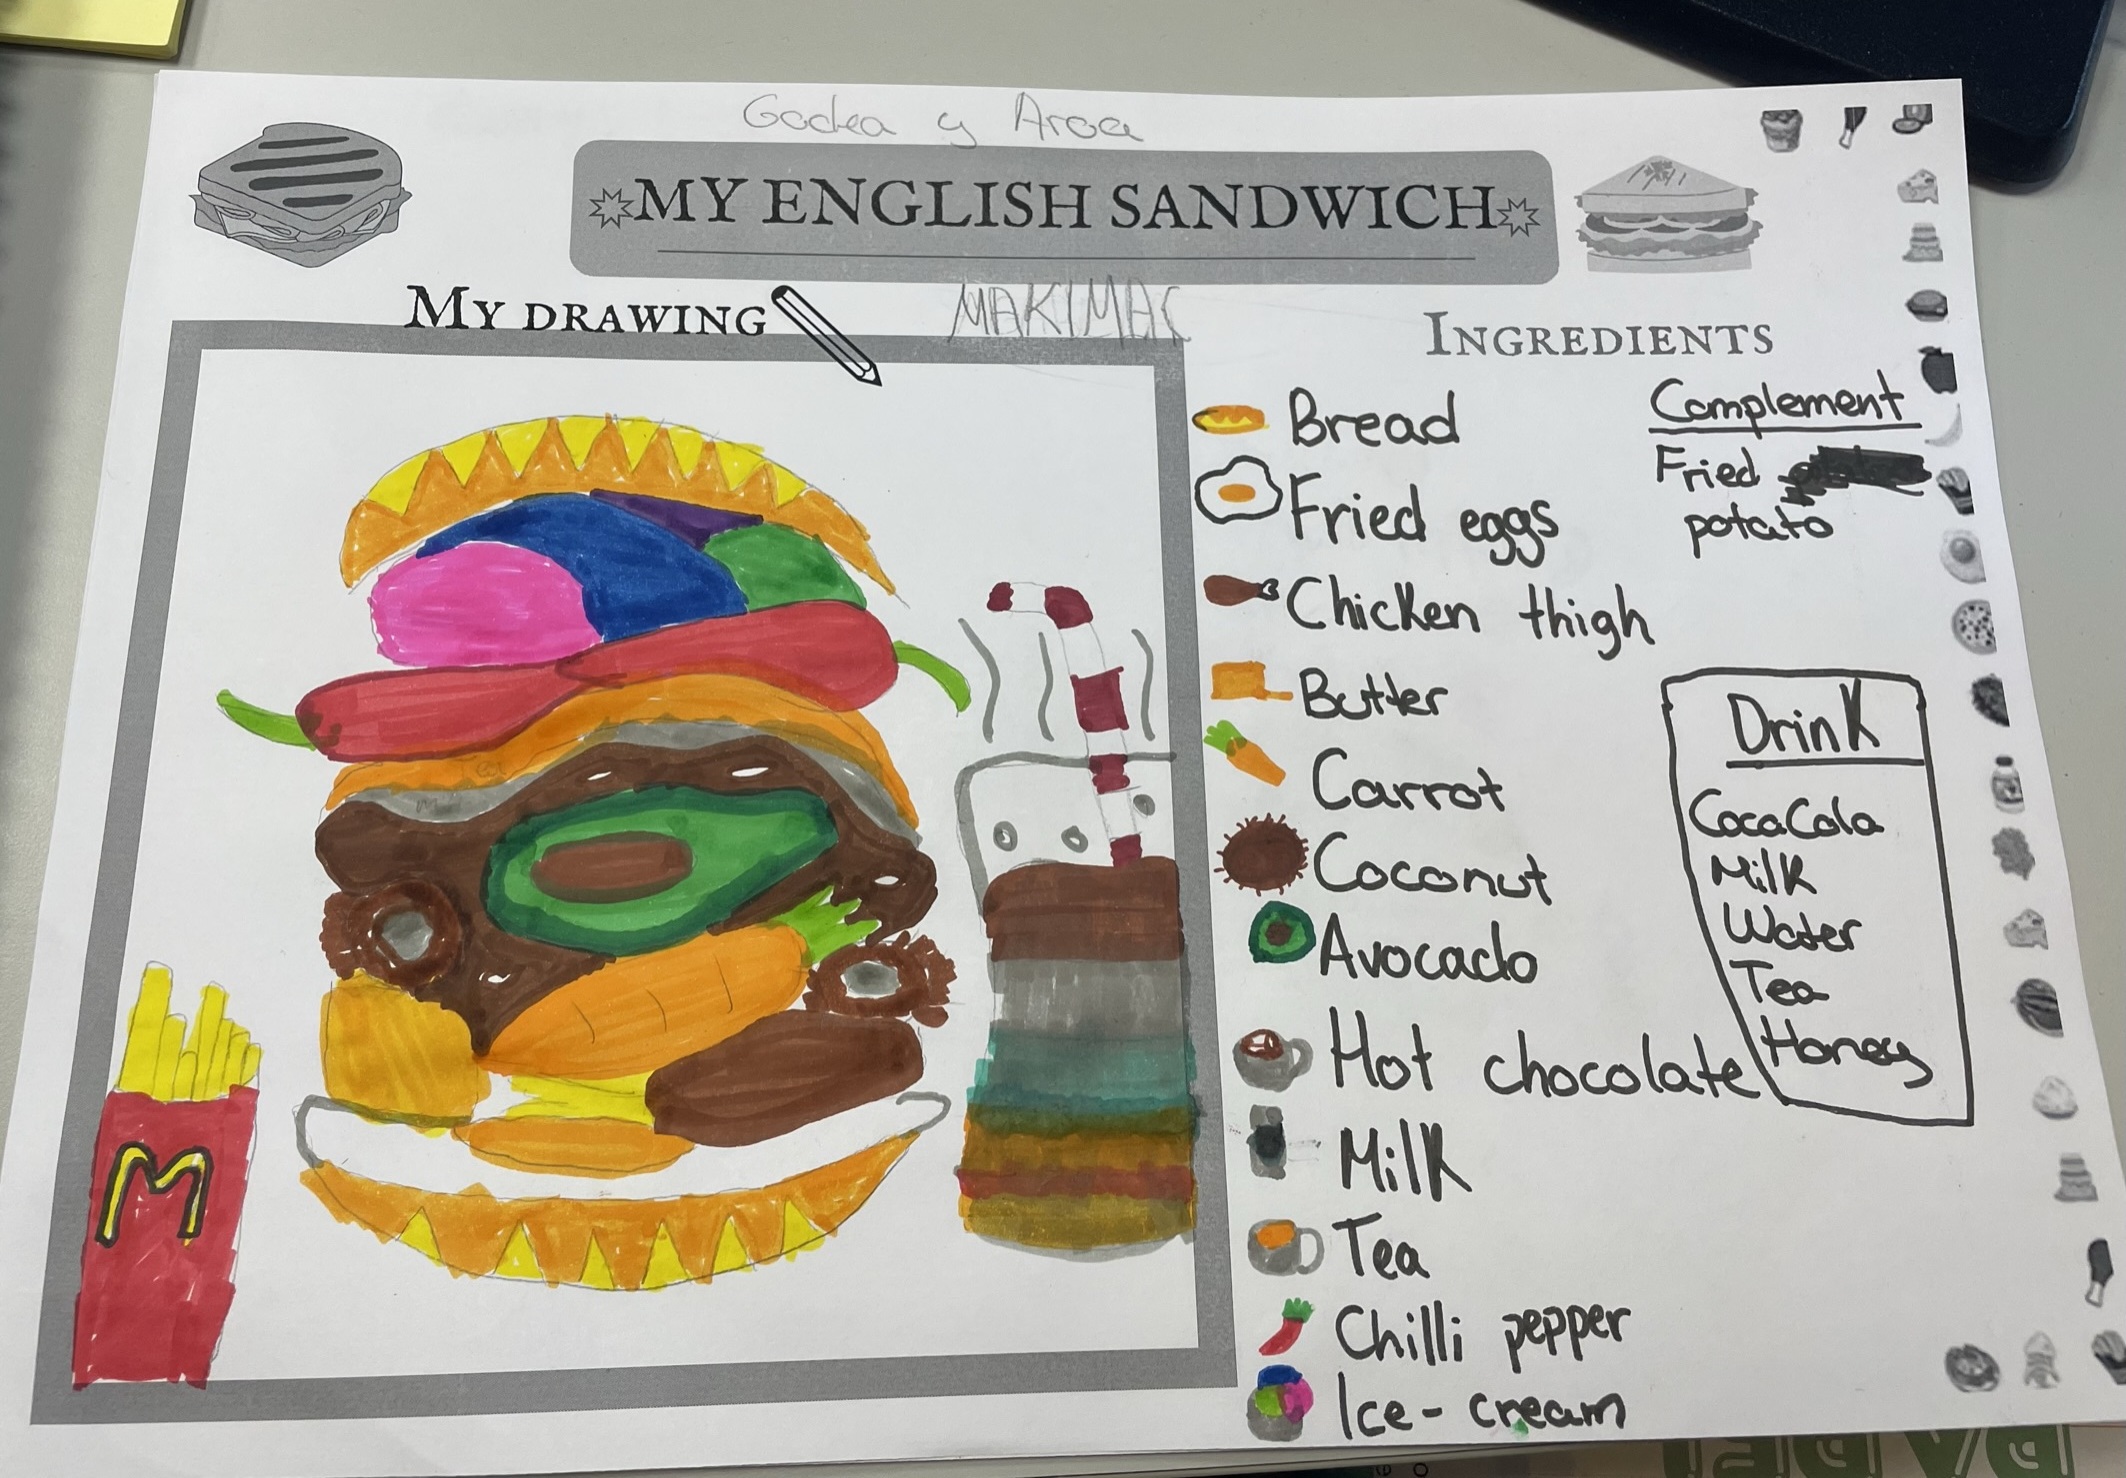 Godea y Aroa
MY ENGLISH SANDWICH
MY DRAWING
MAKIMAC
INGREDIENTS
Bread
Fried eggs
Chicken thigh
Butter
Carrot
Coconut
Avocado
Hot chocolate
Milk
Tea
Chilli pepper
Ice-cream
Complement
Fried
potato
Drink
CocaCola
Milk
Water
Tea
Honey
M